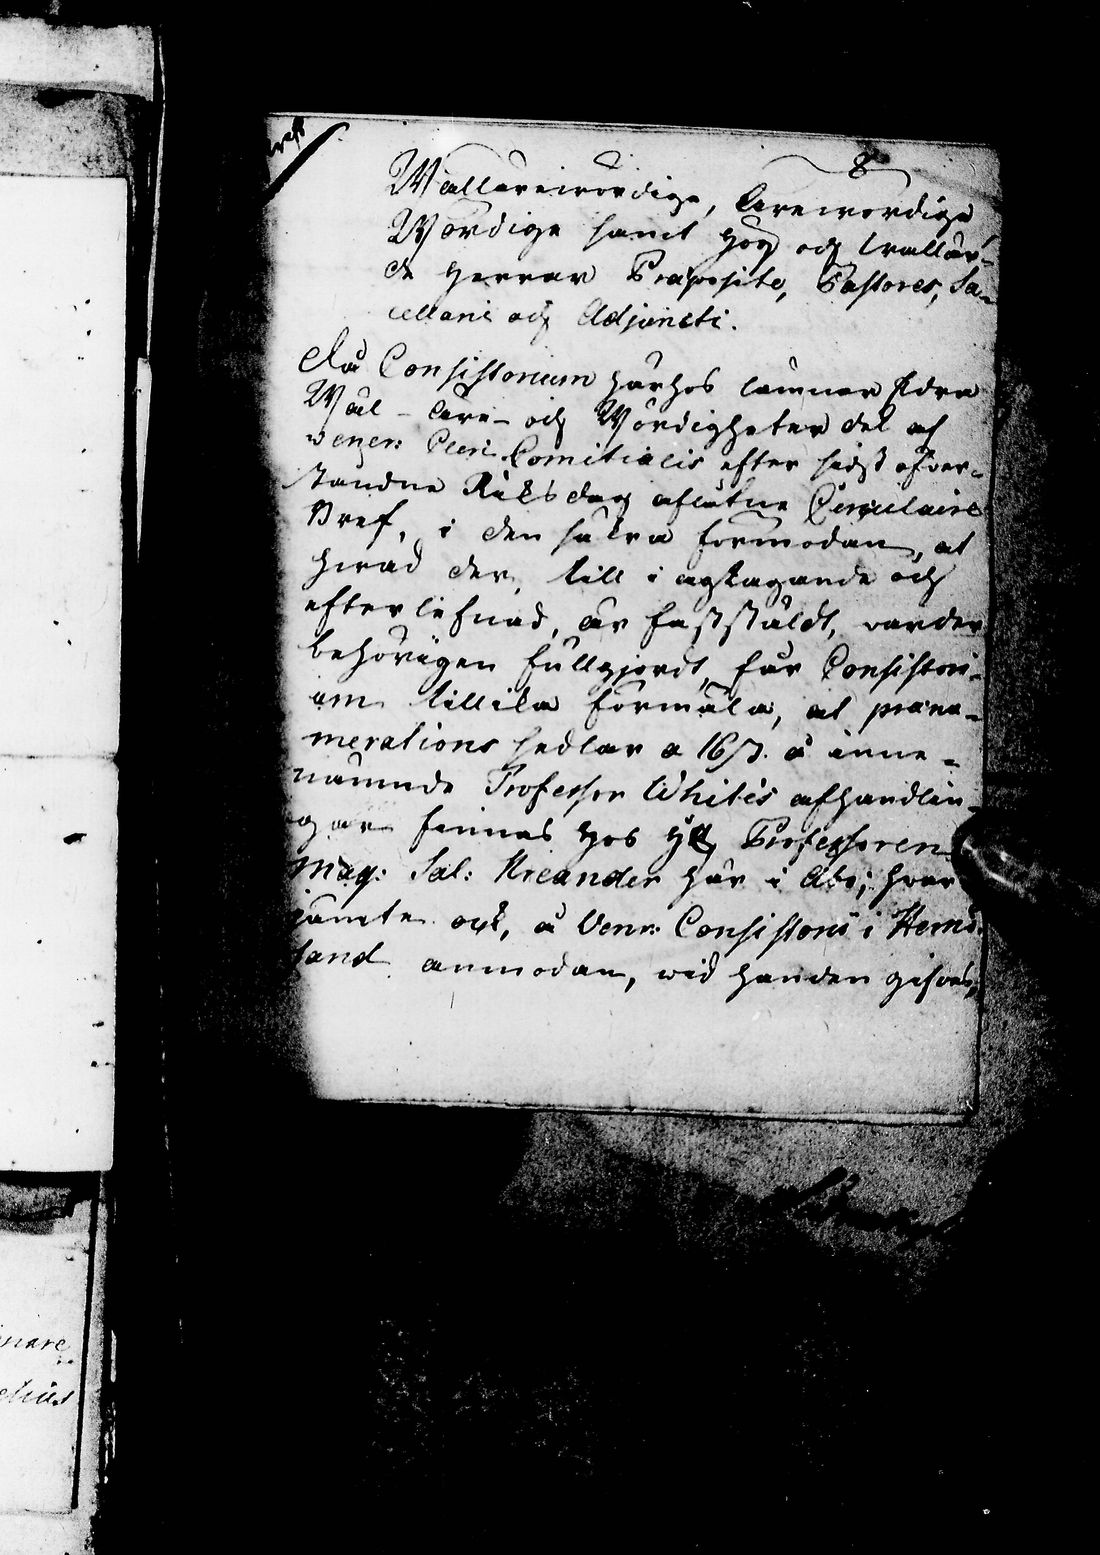 8
Wällärewördige, Ärewördige
Wördige samt Hög och Wällär-
de Herrar Præposite, Pastores, Sa-
cellani och Adjuncti.
Då Consistorium härhos lämnar Edra
Wäl- Äre- och Wördigheter del af
Vener: Cleri Comitialis efter sidst öfver-
standne Riksdag aflåtne Circulaire
Bref, i den säkra förmodan, at
hvad der, till i agttagande och
efterlefnad, är faststäldt, varder
behörigen fullgjordt, får Consistori-
um tillika förmäla, at prænu-
merations sedlar a 16 s. å inne-
nämnde Professor White's afhandlin-
gar finnas hos H Professoren
Mag: Sal: Kreander här i Åbo; hvar
jämte ock, å Vener: Consistorii i Hernö-
sand anmodan, wid handen gifves,
inare
elius